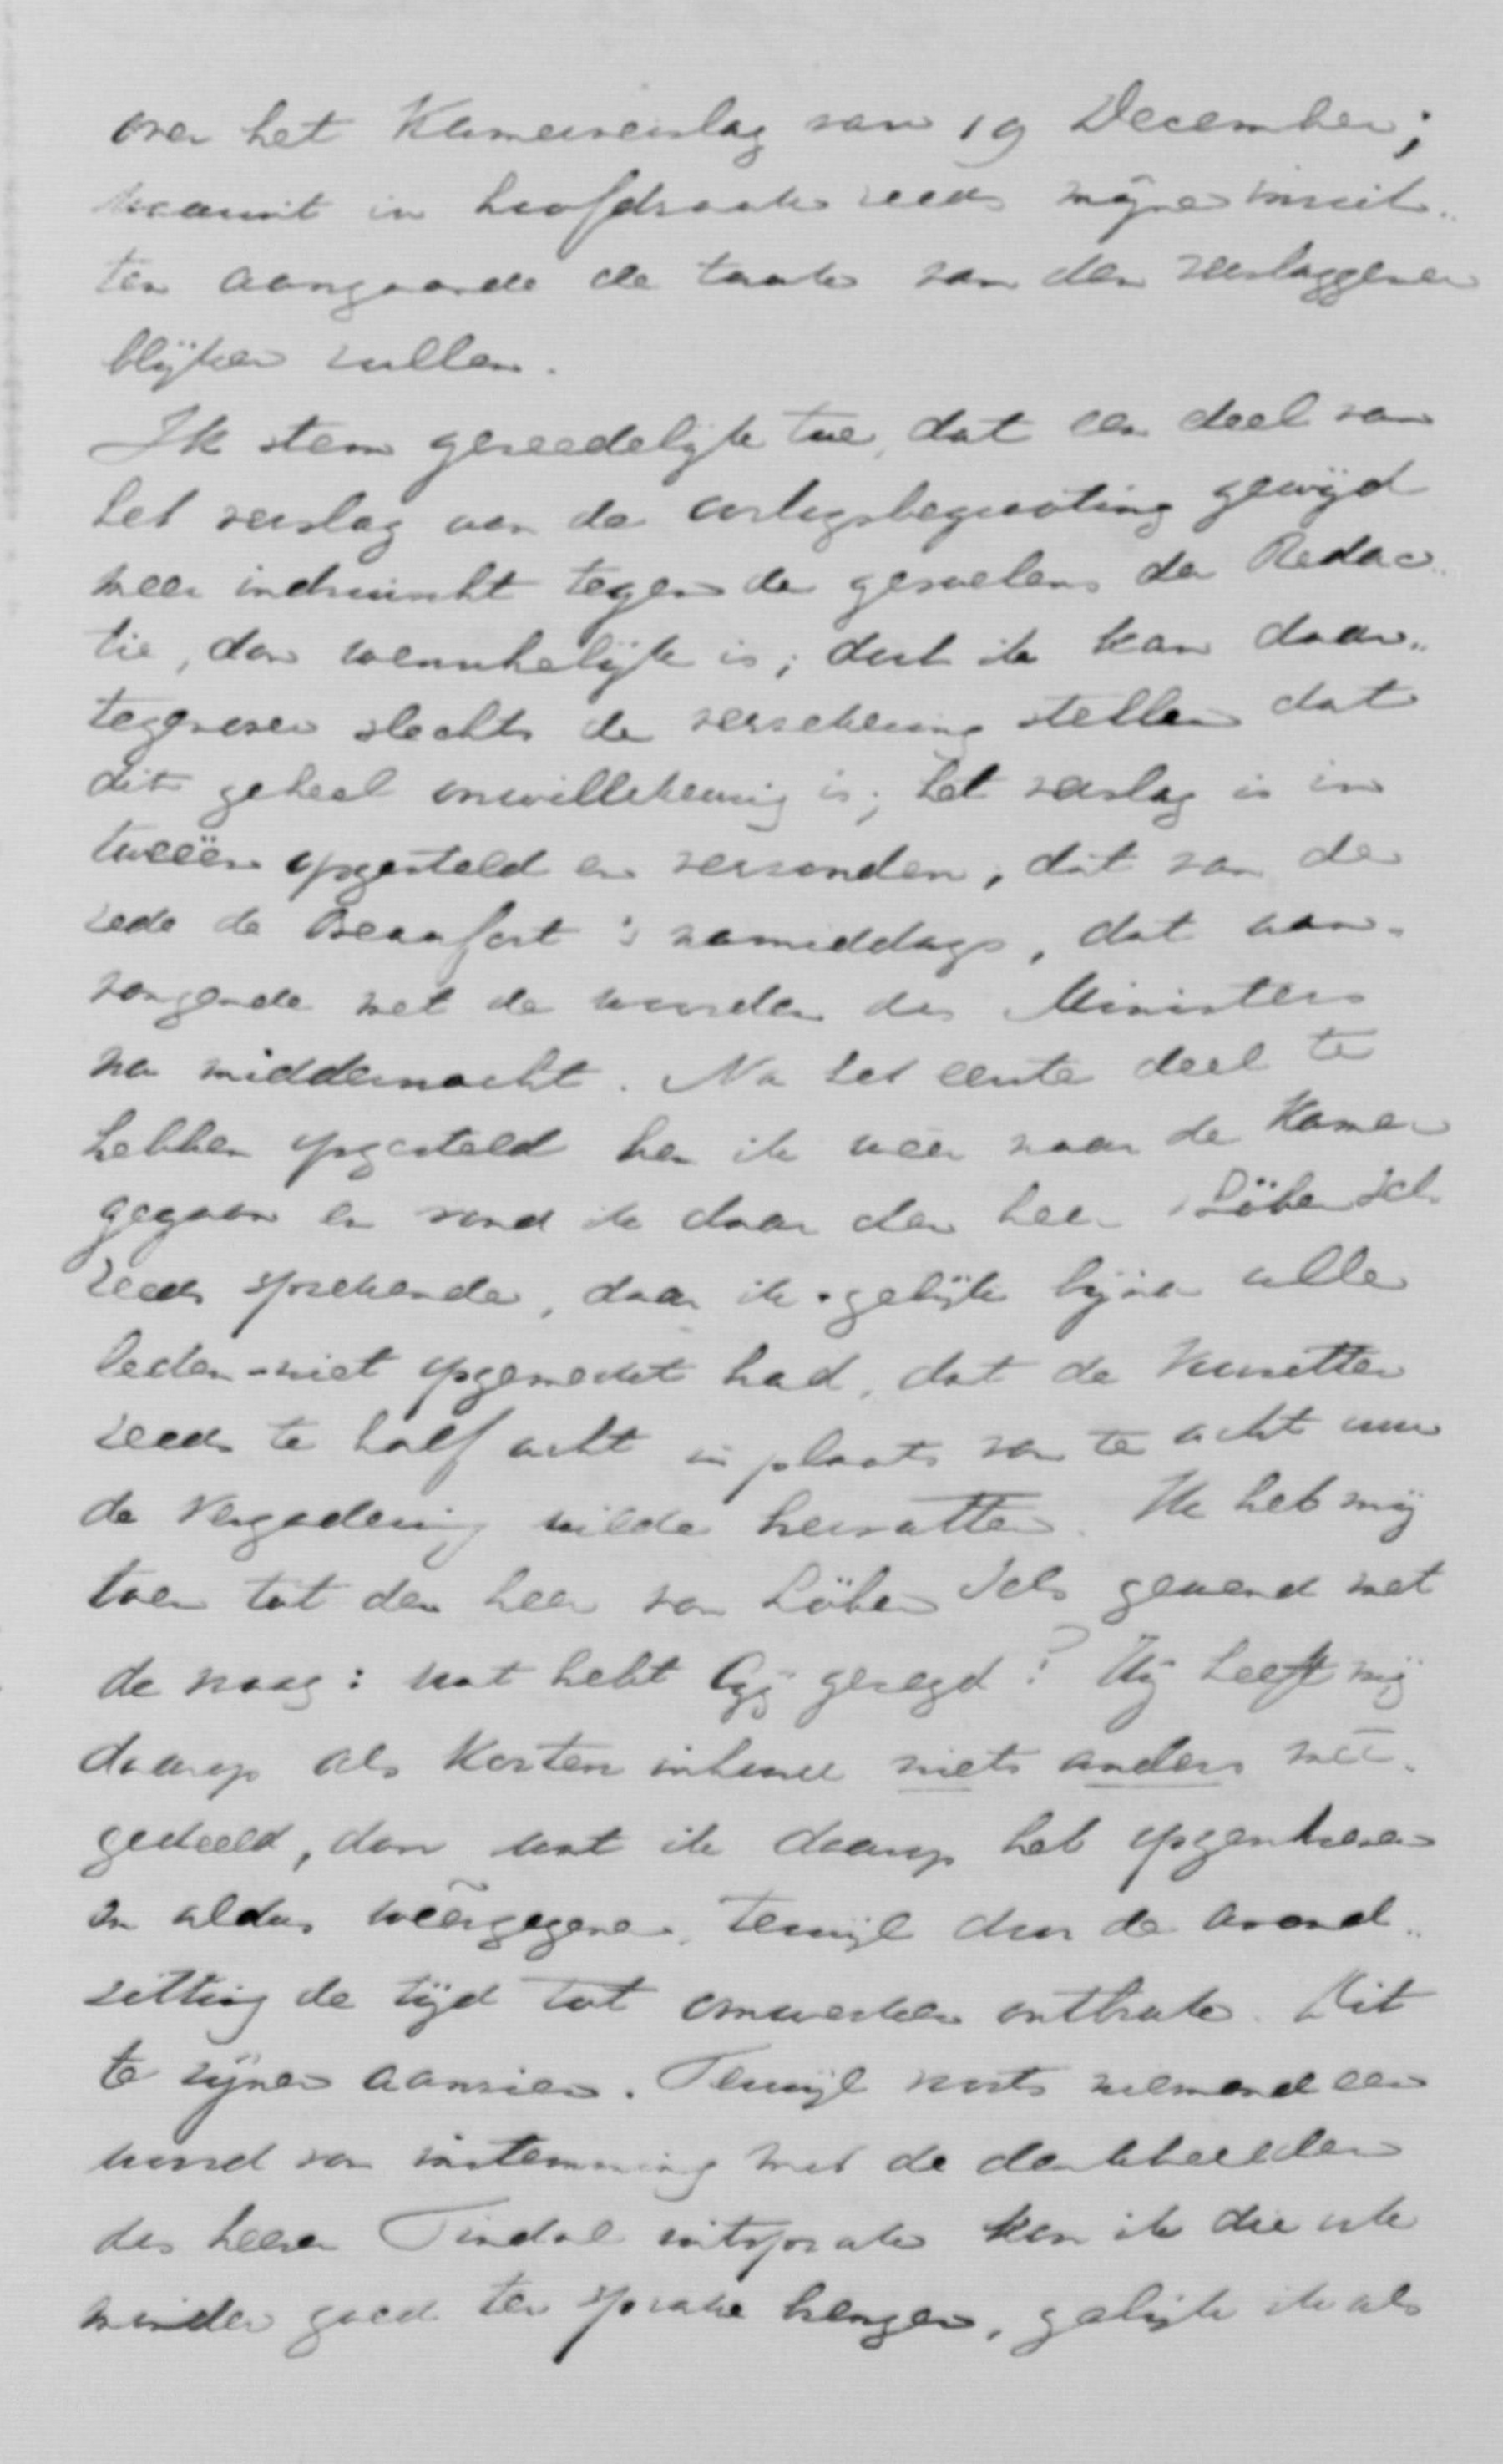 over het Kamerverslag van 19 December;
waaruit in hoofdzaak reeds mijne inzich-
ten aangaande de taak van den verslaggever
blijken zullen.
Ik stem gereedelijk toe, dat een deel van
het verslag aan de oorlogsbegrooting gewijd
meer indruischt tegen de gevoelens der Redac-
tie, dan wenschelijk is; doch ik kan daar-
tegenover slechts de verzekering stellen dat
dit geheel onwillekeurig is; het verslag is in
tweeën opgesteld en verzonden, dat van de
rede de Beaufort 's namiddags, dat aan-
vangende met de woorden des Ministers
na middernacht. Na het eerste deel te
hebben opgesteld ben ik weer naar de Kamer
gegaan en vond ik daar den heer Löben Sels
reeds sprekende, daar ik - gelijk bijna alle
leden - niet opgemerkt had, dat de Voorzitter
reeds te half acht in plaats van te acht uur
de Vergadering wilde hervatten. Ik heb mij
toen tot den heer van Löben Sels gewend met
de vraag: wat hebt Gij gezegd? Hij heeft mij
daarop als korten inhoud niets anders mee-
gedeeld, dan wat ik daarop heb opgeschreven
en aldus weergegeven, terwijl door de avond-
zitting de tijd tot omwerken ontbrak. Dit
te zijnen aanzien. Terwijl voorts niemand een
woord van instemming met de denkbeelden
des heeren Tindal uitsprak kon ik die ook
minder goed ter sprake brengen, gelijk ik als